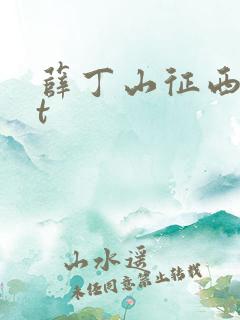 薛丁山征西
t
山水遥
未经同意禁止转载